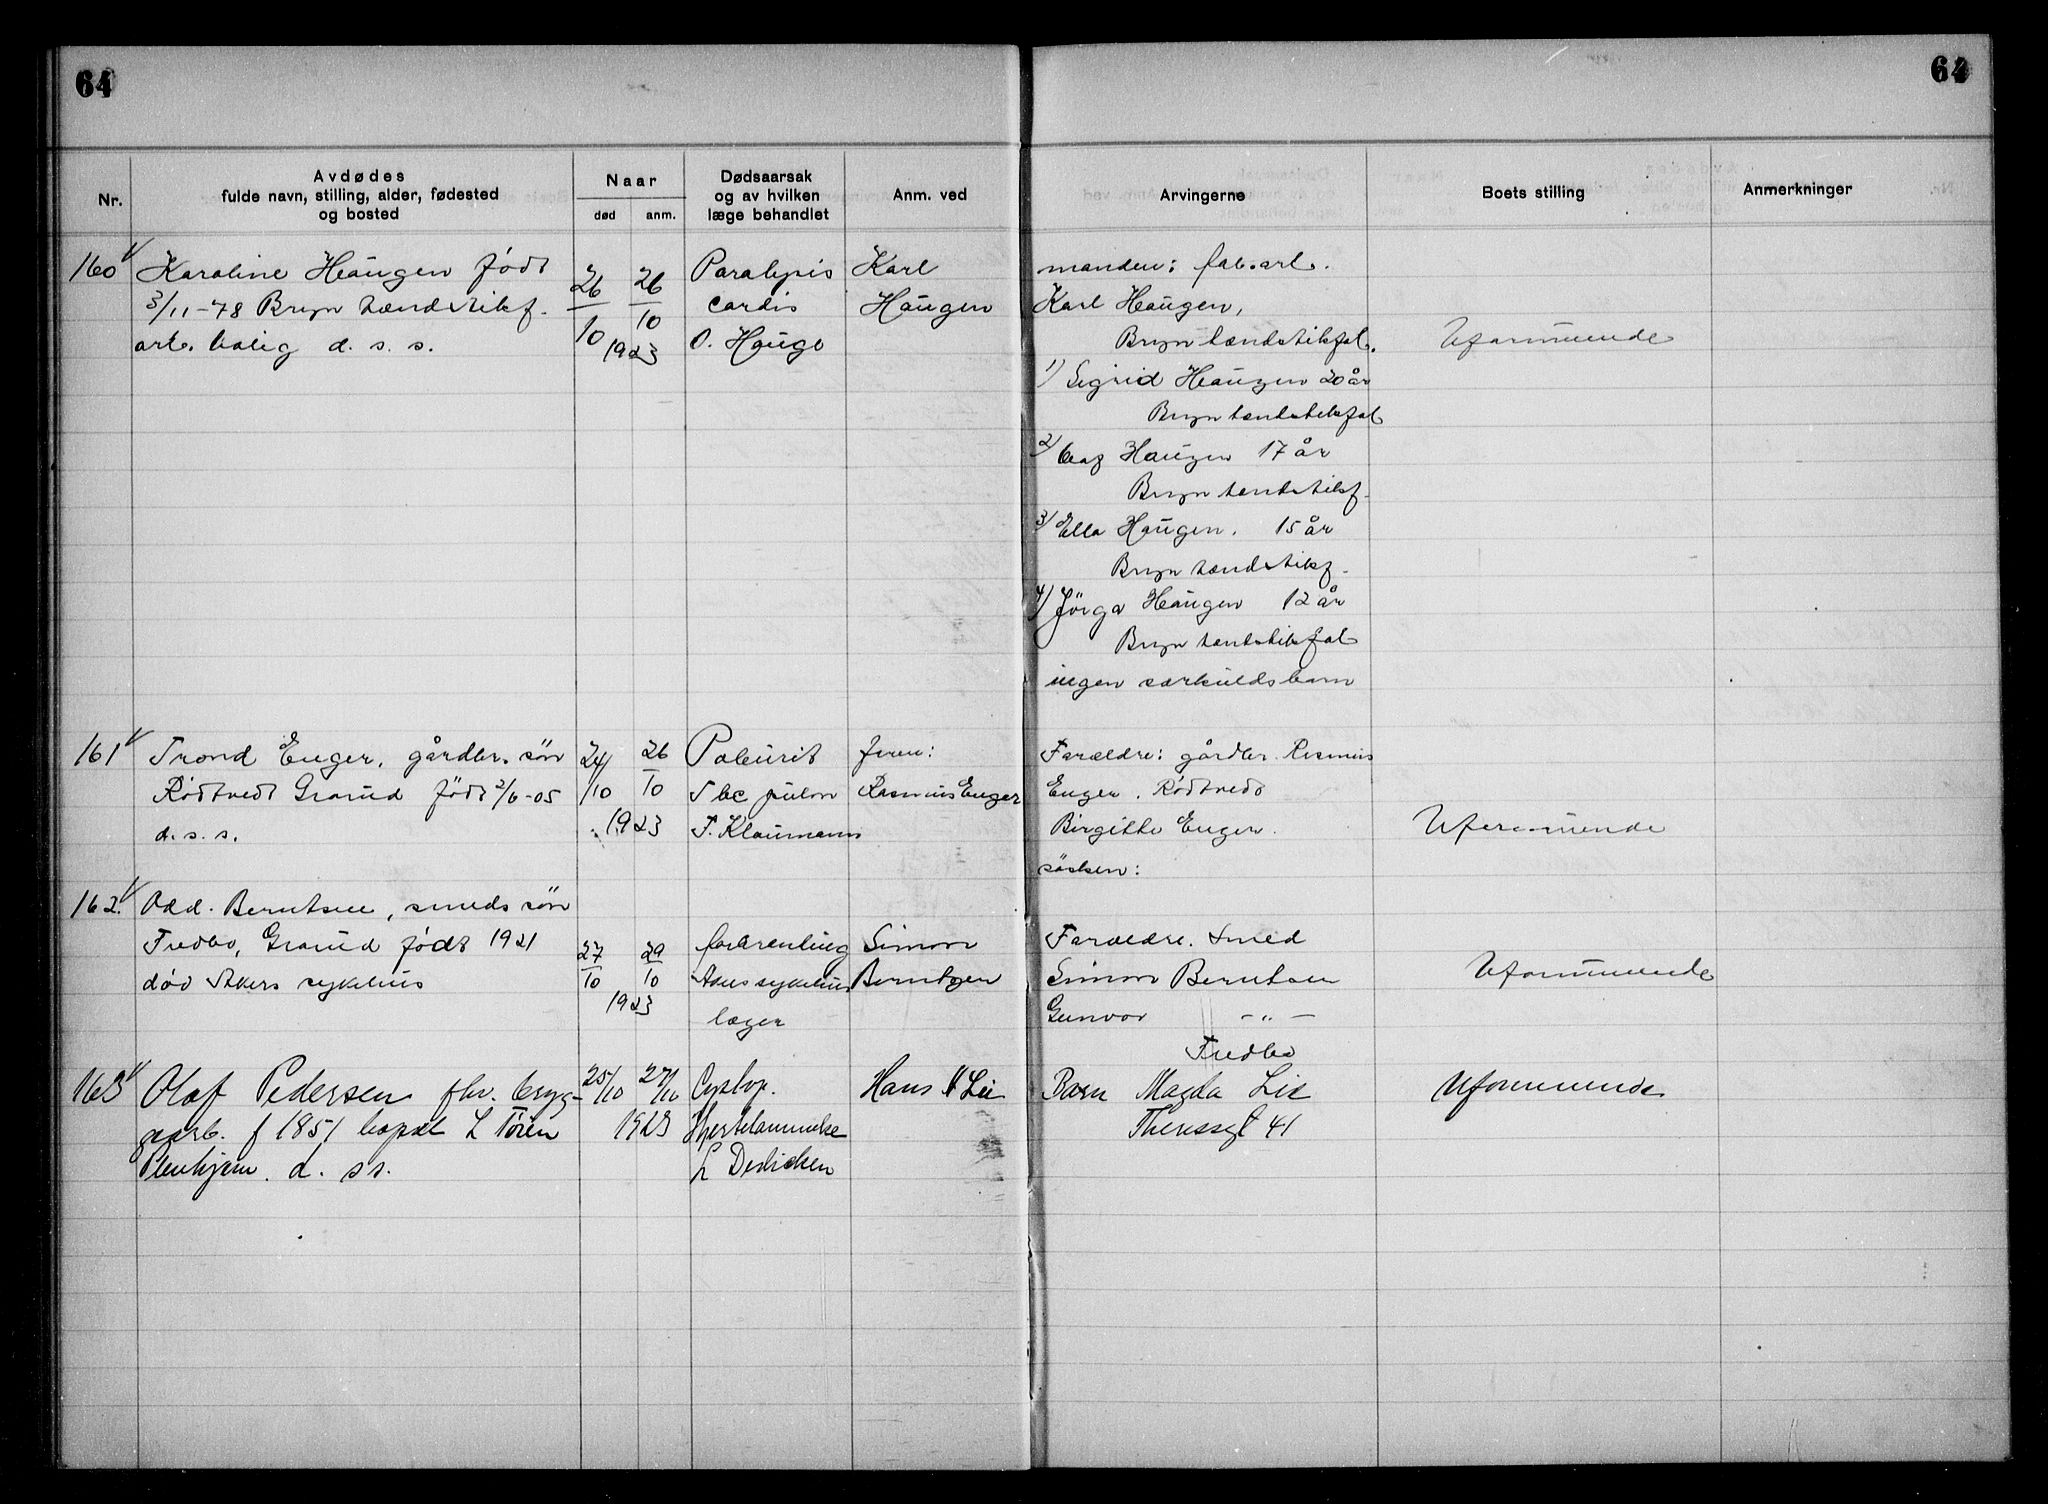 64
64
Nr.
Avdødes
fulde navn, stilling, alder, fødested
og bosted
Naar
død
anm.
Dødsaarsak
og av hvilken
læge behandlet
Anm. ved
Arvingerne
Boets stilling
Anmerkninger
160
Karoline Haugen født
3/11-78 Bryn tændstikf.
arb. bolig d. s. s.
26
10
26
10
1923
Paralysis
cordis
O. Hauge
Karl
Haugen
manden: fab.arb.
Karl Haugen,
Bryn tændstikfab.
1) Sigrid Haugen 20 år
Bryn tændstikfab
2) Haugen 17 år
Bryn tændstikf.
3) Ella Haugen. 15 år
Bryn tændstikf.
4) Jörga Haugen 12 år
Bryn tændstikfab
ingen særkuldsbarn
Uformuende
161
Trond Enger, gårdbr. sön
Rödtvedt Grorud født 2/6-05
d. s. s.
24/10
26
10
1923
Tbc pulm
T. Klaumann
faren:
Rasmus Enger
Forældre: gårdbr. Rasmus
Enger. Rödtvedt
Birgitte Enger.
søsken:
Uformuende
162.
Odd. Berntsen, smeds sön
Fredbo, Grorud født 1921
död Akers sykehus
27
10
29
10
1923
forbrenning
Akers sykehus
læger
Simon
Berntzen
Forældre. Smed
Simon Berntsen
Gunvor -"-
Fredbo
Uformuende
163
Olaf Pedersen fhv. bryg-
gearb. f 1851 bopæl L Töien
Pleiehjem. d. s s.
25/10
27/10
1923
Cystop.
Hjertelammelse
L Dedichen
Hans N Lie
Barn Magda Lie
Theresegt 41
Uformuende